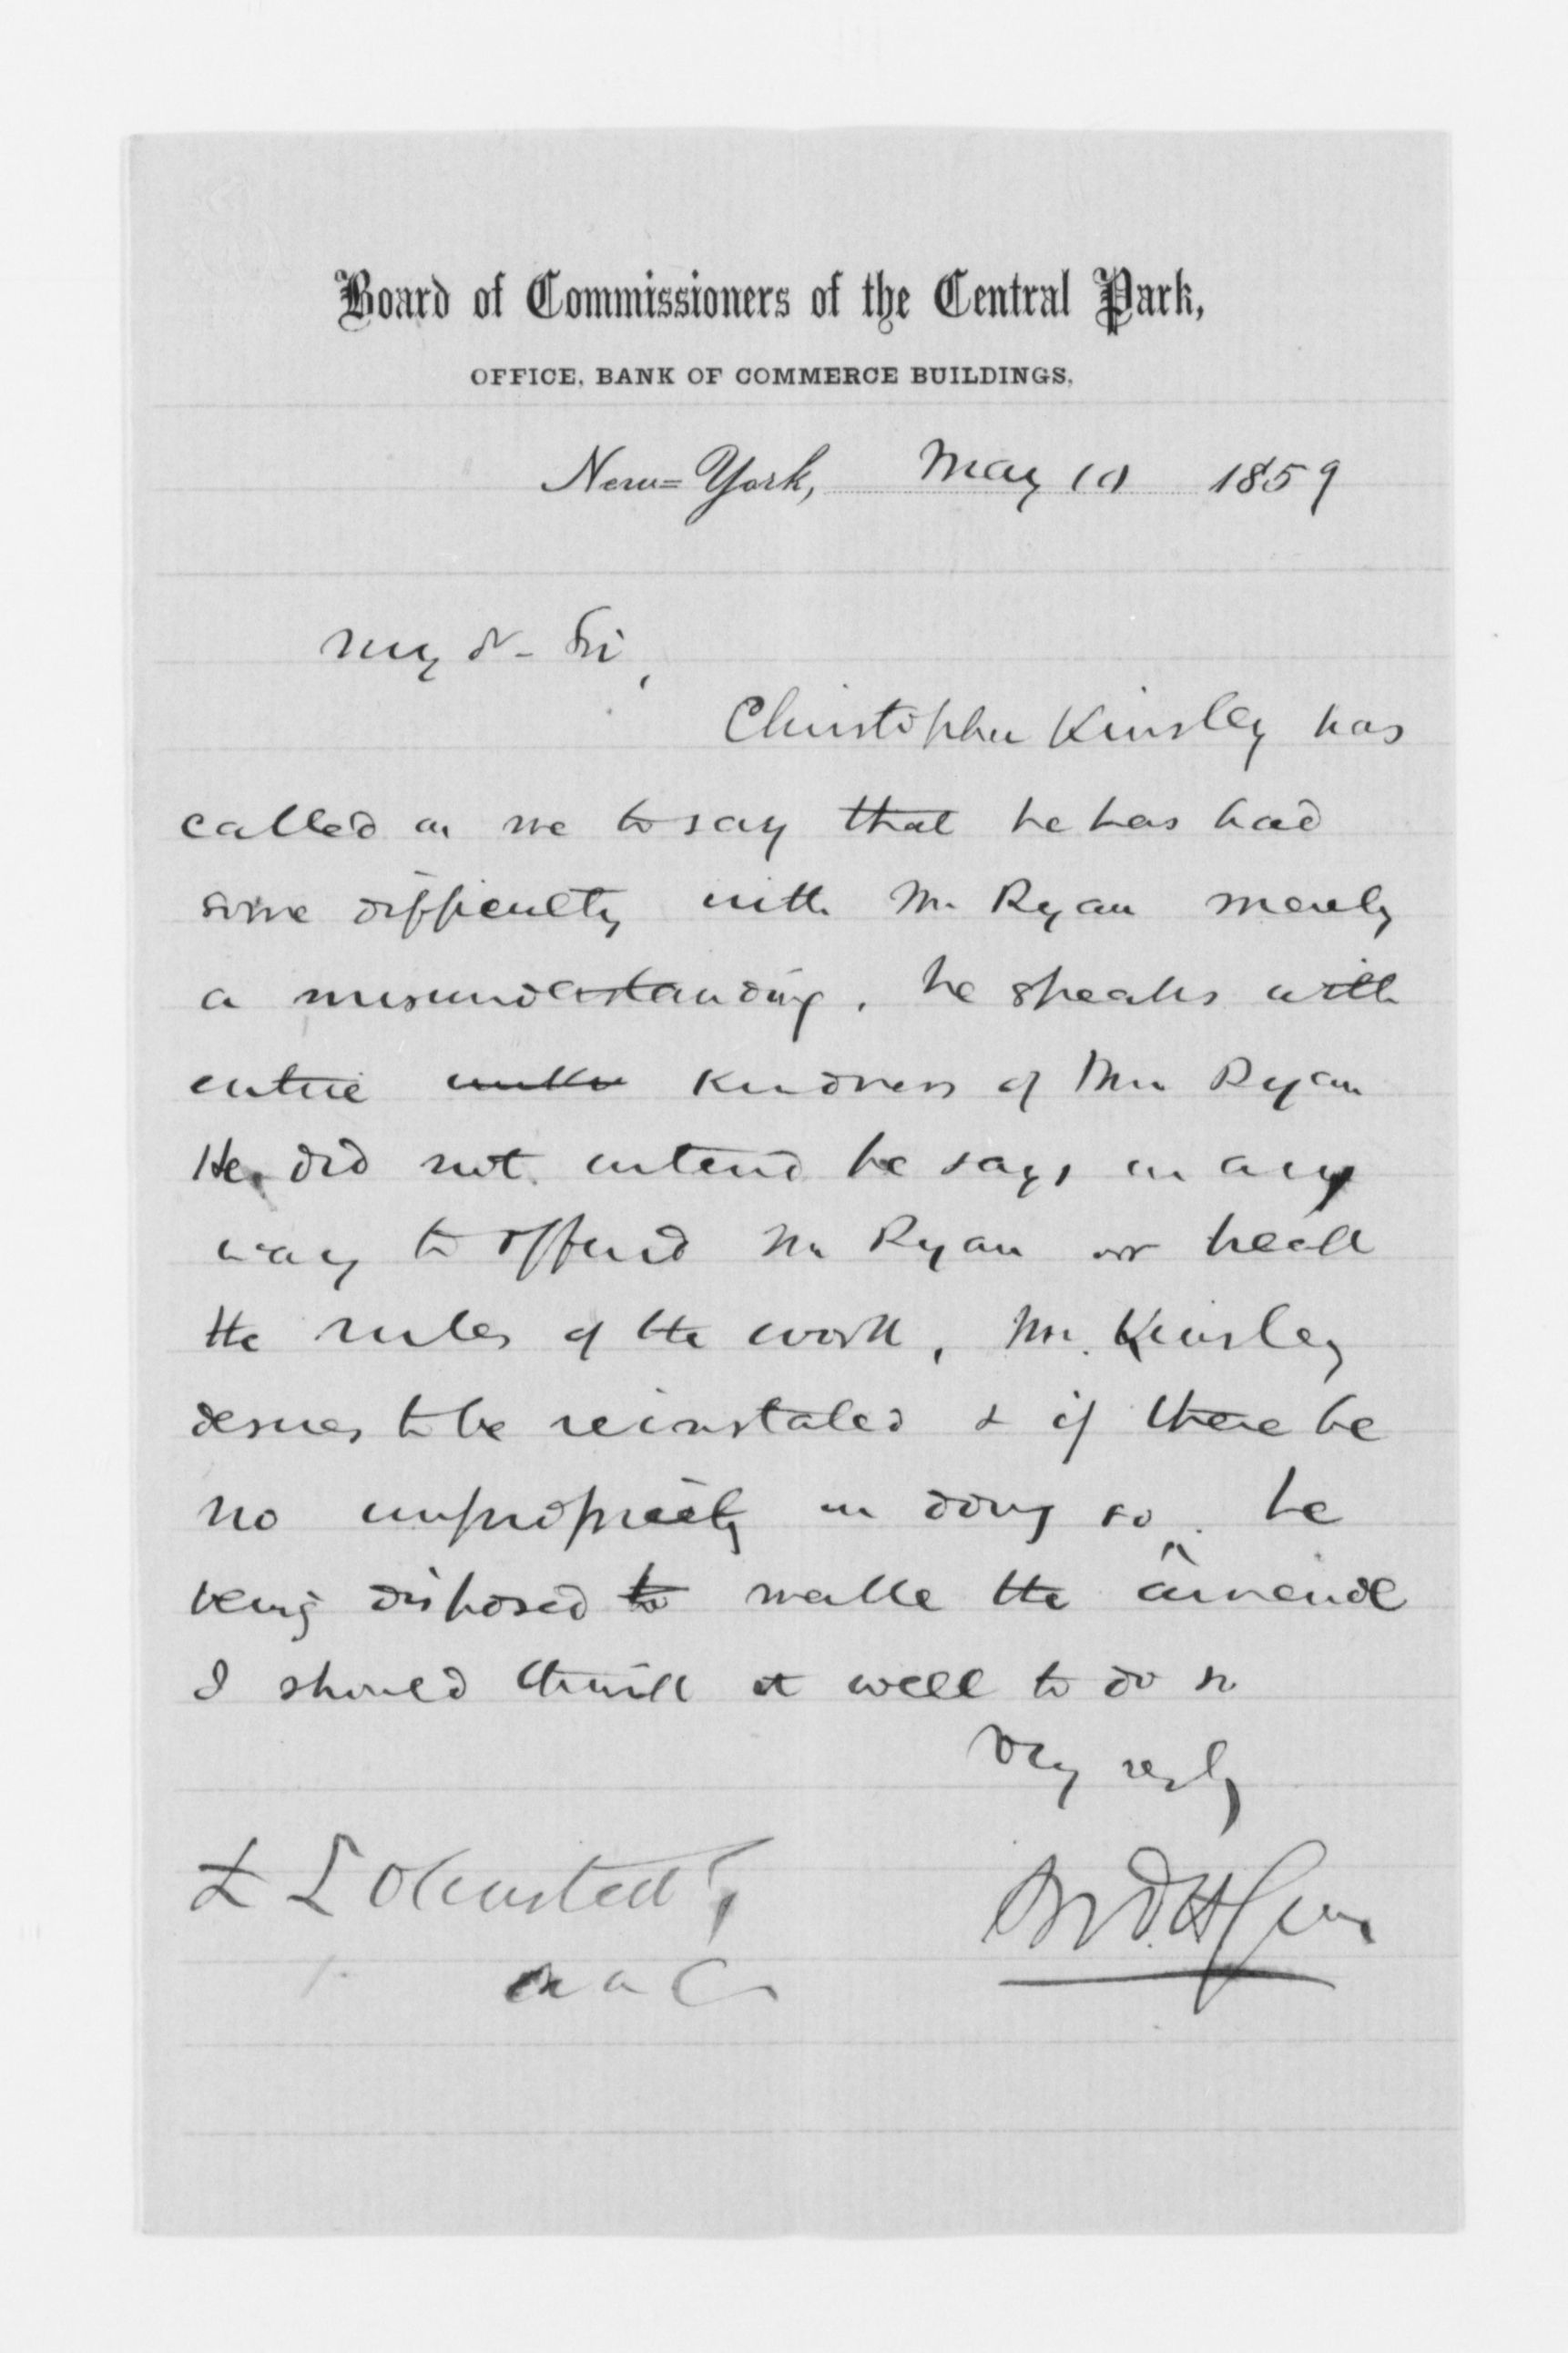 Board of Commissioners of the Central Park,
OFFICE, BANK OF COMMERCE BUILDINGS,
New=York, May 10 1859
My Dr Sir,
Christopher Kinsley has
called on me to say that he has had
some difficulty with Mr Ryan merely
a misunderstanding. he speaks with
entire kindness of Mr Ryan
He did not intend he says in any
way to offend Mr Ryan or break
the rules of the work, Mr. Kinsley
desires to be reinstated & if there be
no impropriety in doing so he
being disposed to make the amende
I should think it well to do so
Very resply
F L Olmsted
And H Green